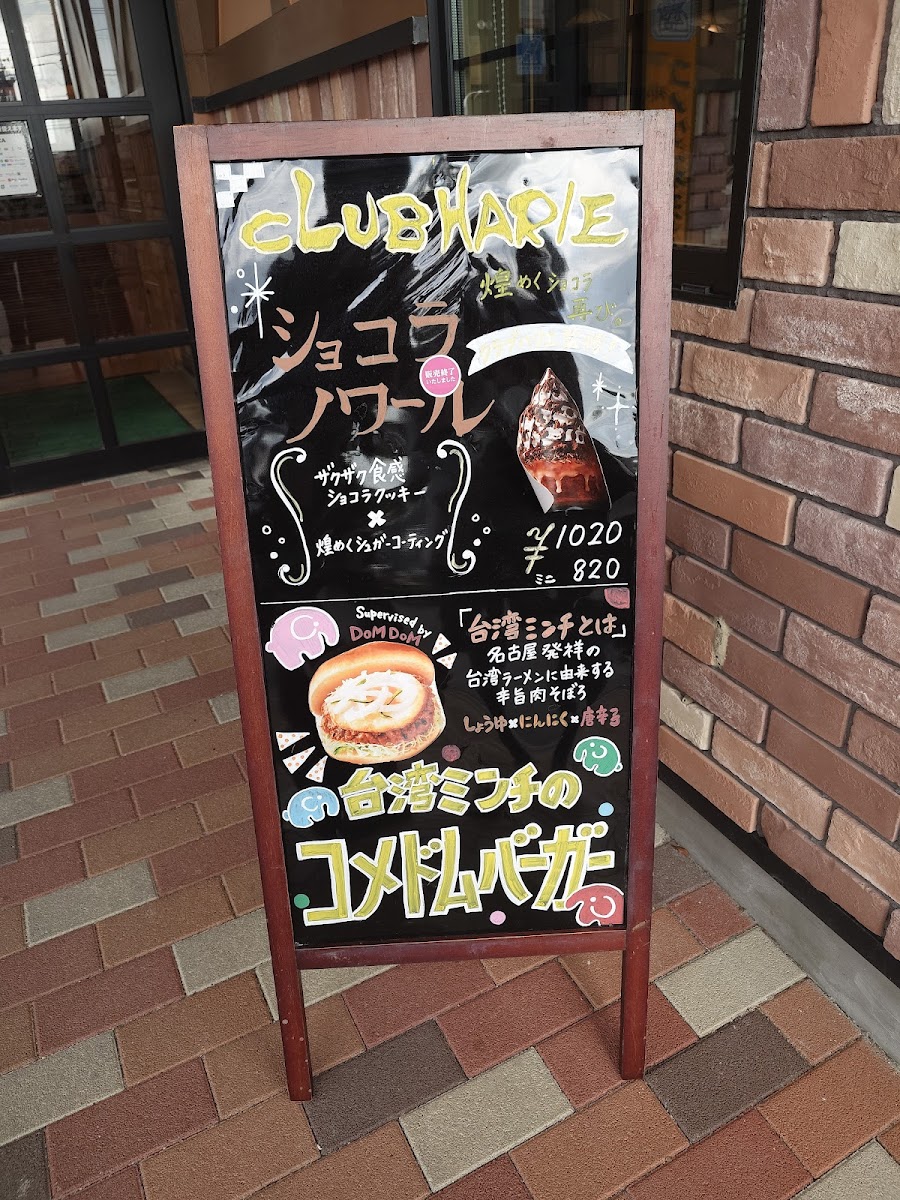 CLUBHARIE
煌めくショコラ
再び。
ショコラ
ノワール
販売終了
いたしました
ザクザク食感
ショコラクッキー
×
煌めくシュガーコーティング
¥1020
ミニ 820
Supervised by
DOMDOM
「台湾ミンチとは」
名古屋発祥の
台湾ラーメンに由来する
辛旨肉そぼろ
しょうゆ×にんにく×唐辛子
台湾ミンチの
コメドムバーガー